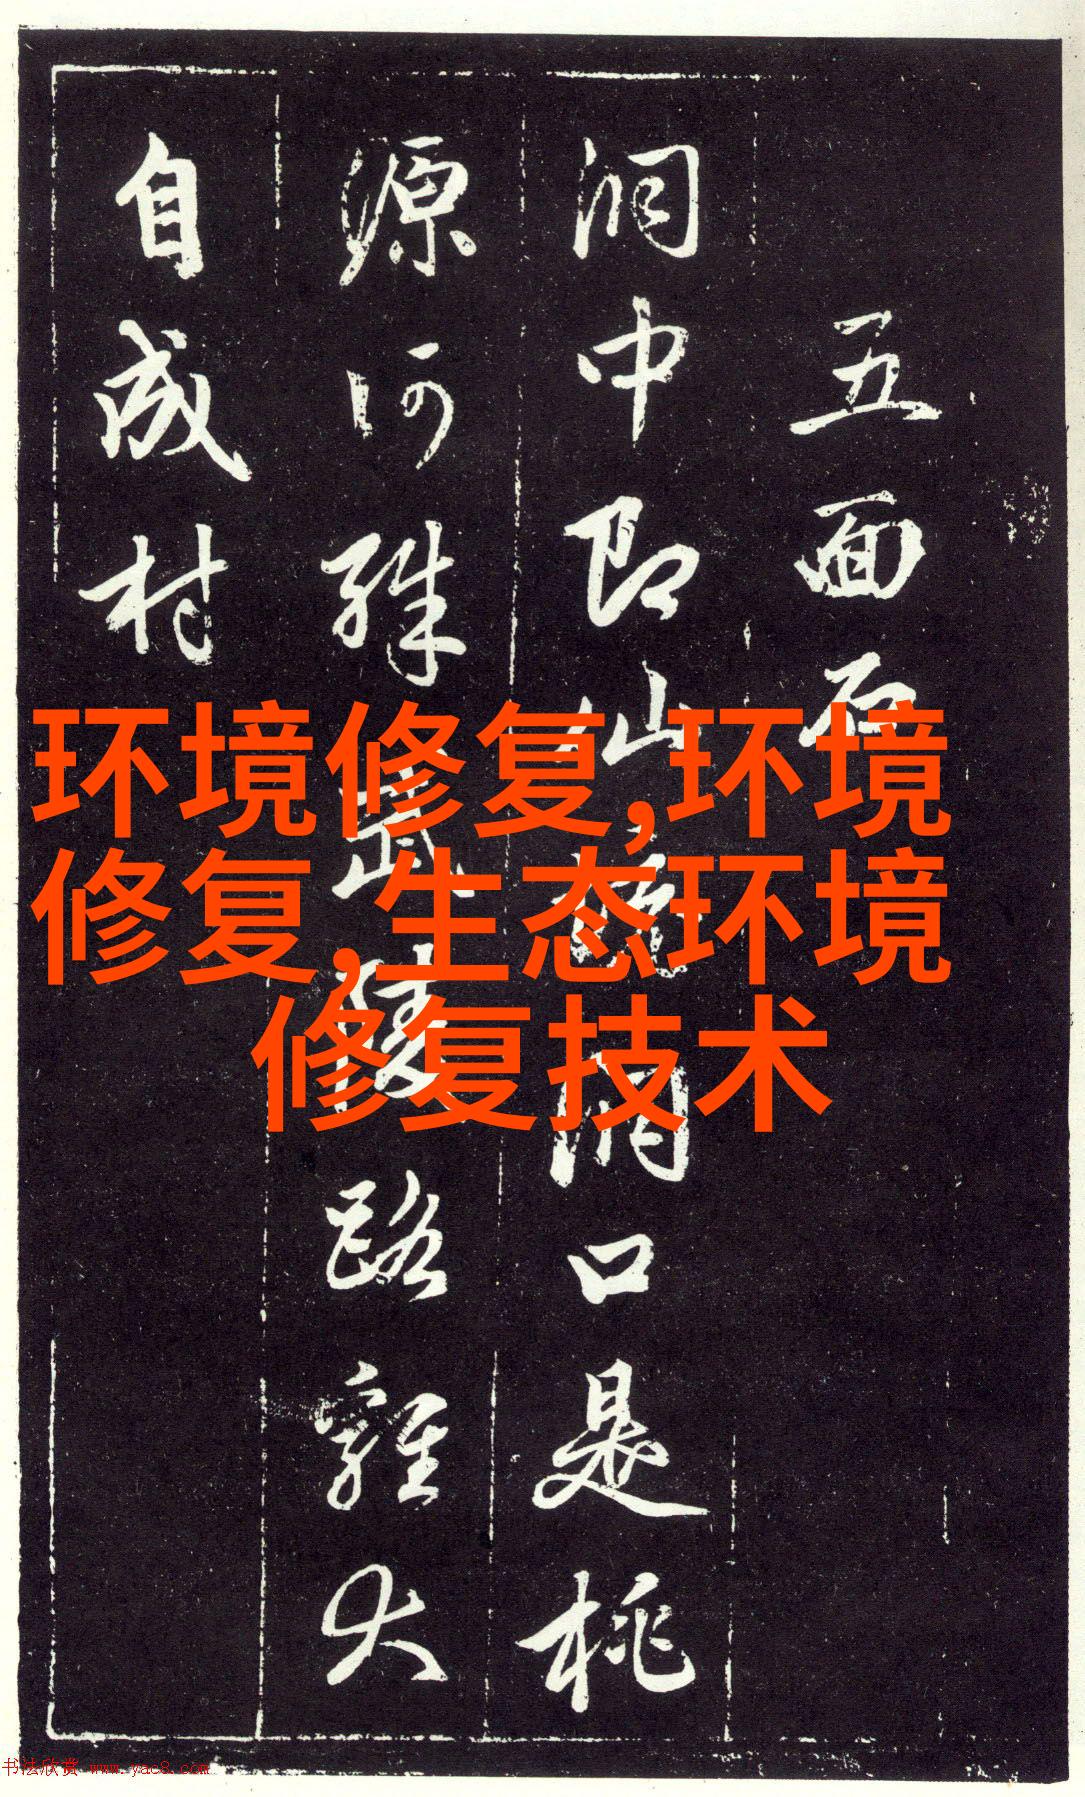 五面石
洞中即仙境洞口是桃
源何殊武陵路雞犬
自成村
环境修复,环境
修复,生态环境
修复技术
书法欣赏 www.yac8.com